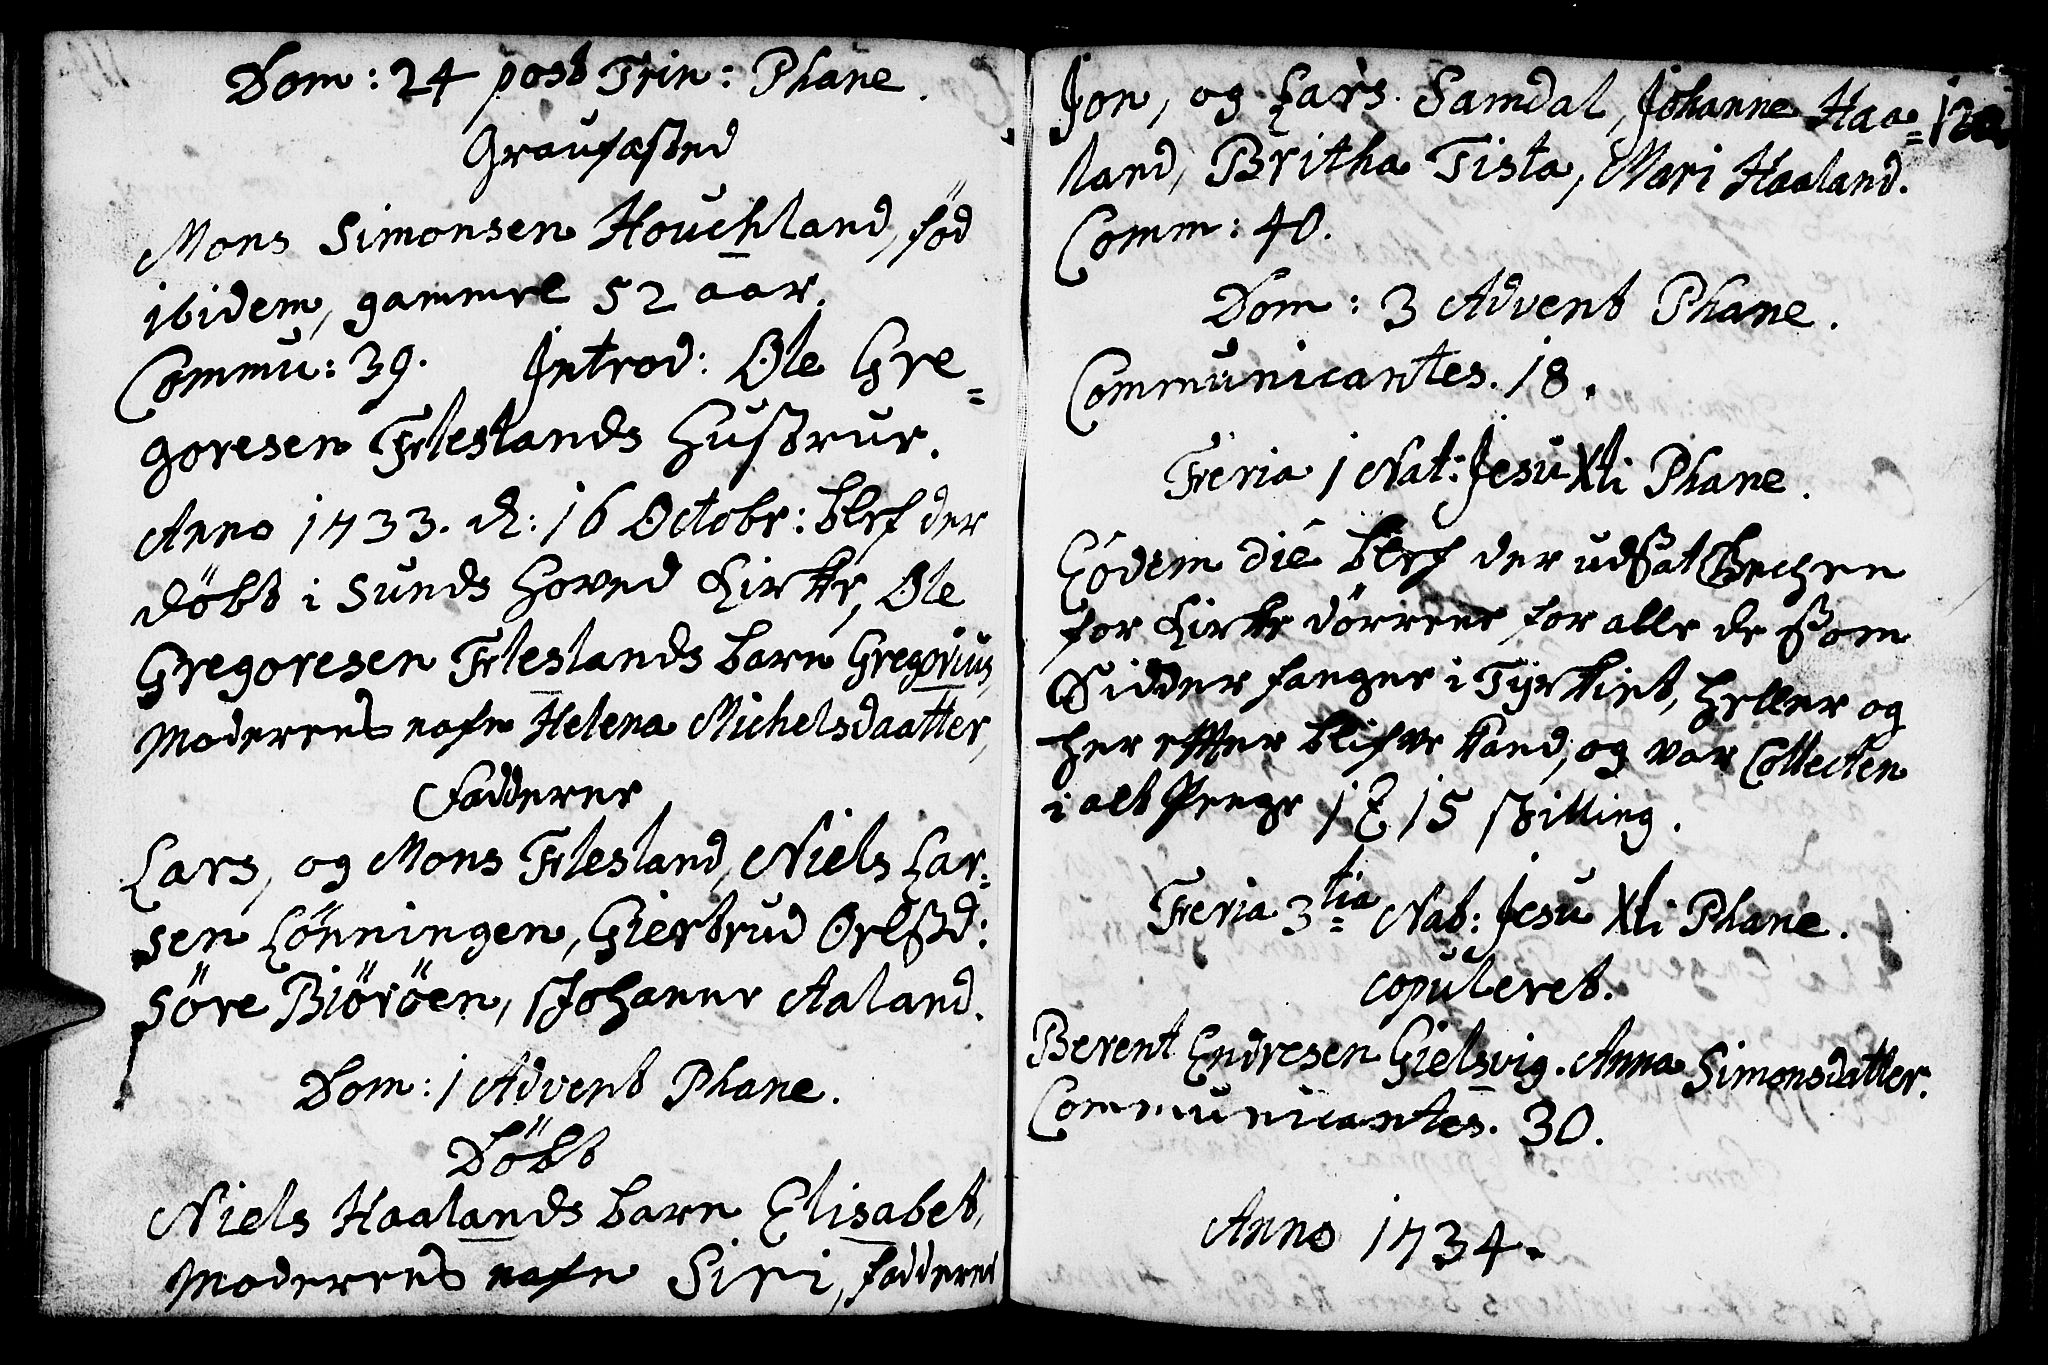 Dom: 24 post Trin: Phane.
Graufæsted
Mons Simonsen Houchland, föd
ibidem, gammel 52 aar.
Commu: 39. Introd: Ole Gre=
goresen Fleslands Hustrue.
Anno 1733. d: 16 Octobr: blef der
döbt i Sunds Hoved Kirke, Ole
Gregoresen Fleslands barn Gregorius,
Moderens nafn Helena Michelsdaatter,
Fadderne
Lars, og Mons Flesland, Niels Lar=
sen Lönningen, Giertrud Orlsd:
Söre Biöröen, Johanne Aaland.
Dom: 1 Advent Phane.
Döbt
Niels Haalands barn Elisabet,
Moderens nafn Siri, fadderne
Jon, og Lars Samdal, Johanne Haa=
land, Britha Tista, Mari Haaland.
Comm: 40.
Dom: 3 Advent Phane.
Communicantes. 18.
Feria 1 Nat: Jesu Xti Phane.
Eodem die blef der udsat Bechen
for Kirke dörrene for alle de som
Sidder fanger i Tyrkiet, heller og
her effter blifve kand, og var Collecten
i alt Penge 1 15 skilling.
Feria 3tia Nat: Jesu Xti Phane.
copuleret.
Berent Endresen Gielsvig. Anna Simonsdatter.
Communicantes. 30.
Anno 1734.